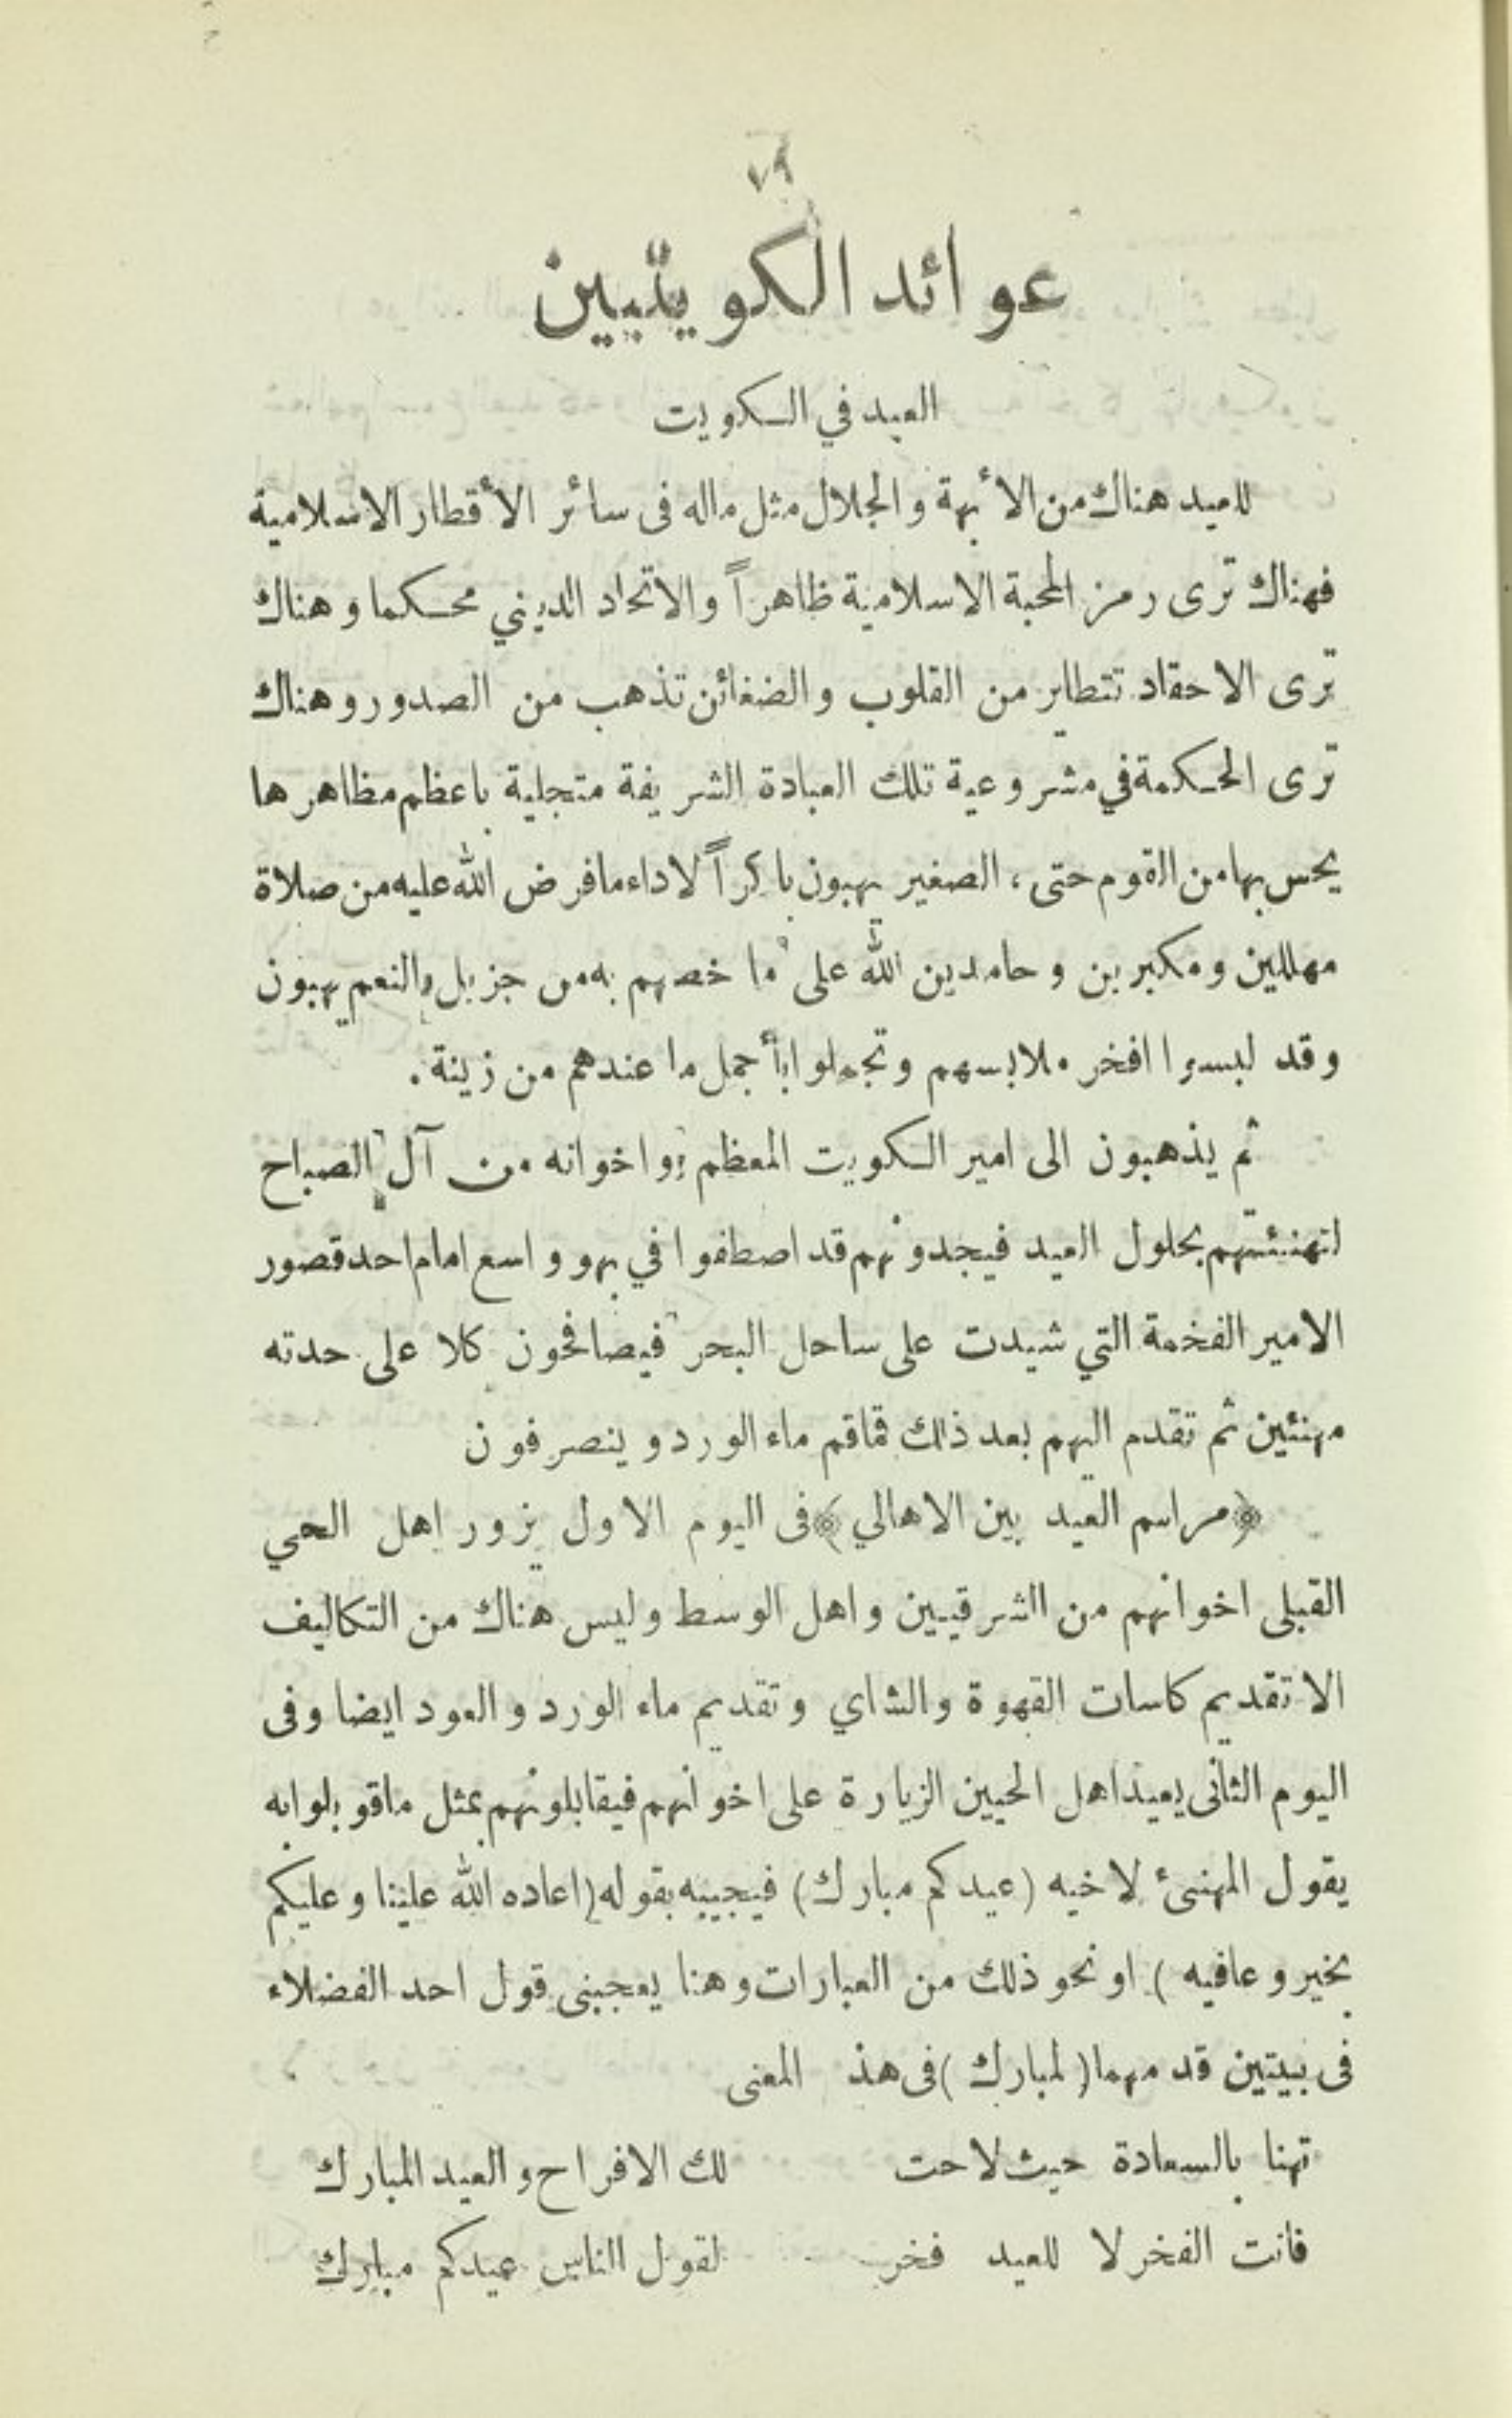 ٧٩
عوائد الكويتيين
العيد في الكويت
للعيد هناك من الأبهة والجلال مثل ماله فى سائر الأقطار الاسلامية
فهناك ترى رمز المحبة الاسلامية ظاهراً والاتحاد الديني محكما وهناك
ترى الاحقاد تتطاير من القلوب والضغائن تذهب من الصدور وهناك
ترى الحكمة في مشروعية تلك العبادة الشريفة متجلية باعظم مظاهرها
يحس بها من القوم حتى، الصغير يهبون باكراً لاداء ما فرض الله عليه من صلاة
مهللين ومكبرين وحامدين الله على ما خصهم به من جزيل والنعم يهبون
وقد لبسوا افخر ملابسهم وتجملوا بأجمل ما عندهم من زينة.
ثم يذهبون الى امير الكويت المعظم واخوانه من آل الصباح
لتهنئتهم بحلول العيد فيجدونهم قد اصطفوا في بهو واسع امام احد قصور
الامير الفخمة التي شيدت على ساحل البحر فيصافحون كلا على حدته
مهنئين ثم تقدم اليهم بعد ذلك قماقم ماء الورد وينصرفون
﴿مراسم العيد بين الاهالي﴾ فى اليوم الاول يزور اهل الحي
القبلى اخوانهم من الشرقيين واهل الوسط وليس هناك من التكاليف
الا تقديم كاسات القهوة والشاي وتقديم ماء الورد والعود ايضا وفى
اليوم الثانى يعيد اهل الحيين الزيارة على اخوانهم فيقابلونهم بمثل ما قوبلوا به
يقول المهنئ لاخيه (عيدكم مبارك) فيجيبه بقوله (اعاده الله علينا وعليكم
بخير وعافيه) او نحو ذلك من العبارات وهنا يعجبنى قول احد الفضلاء
فى بيتين قدمهما (لمبارك) فى هذ المعنى
تهنا بالسعادة حيث لاحت لك الافراح والعيد المبارك
فانت الفخر لا للعيد فخر لقول الناس عيدكم مبارك